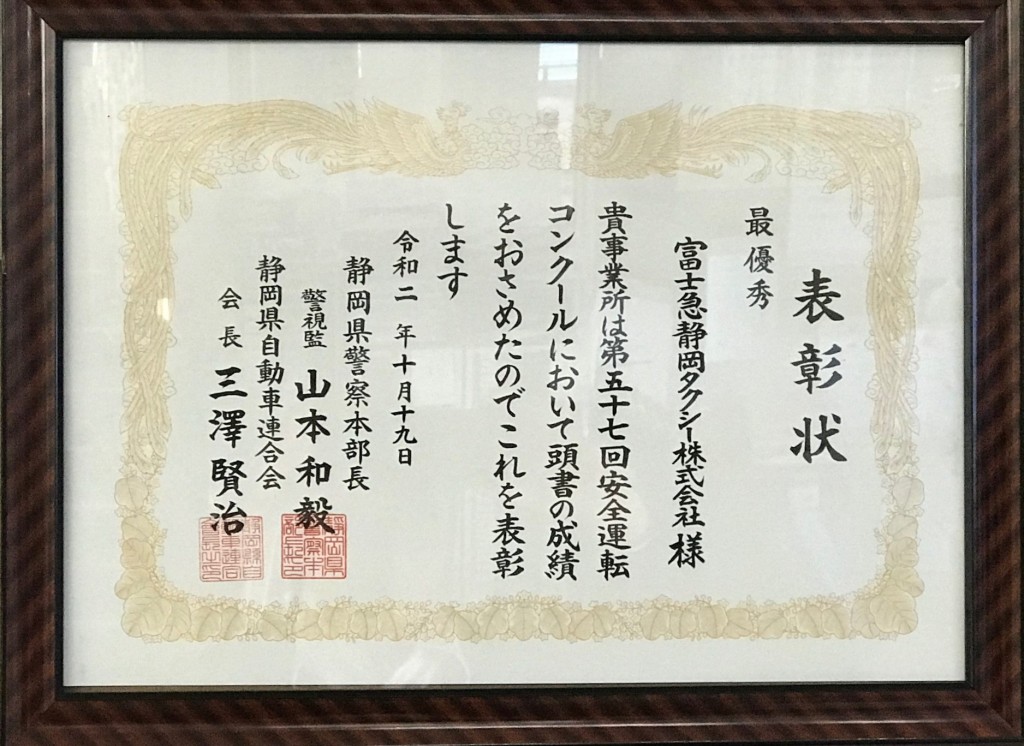 表彰状
最優秀
富士急静岡タクシー株式会社様
貴事業所は第五十七回安全運転
コンクールにおいて頭書の成績
をおさめたのでこれを表彰
します
令和二年十月十九日
静岡県警察本部長
警視監 山本和毅
静岡県自動車連合会
会長 三澤賢治